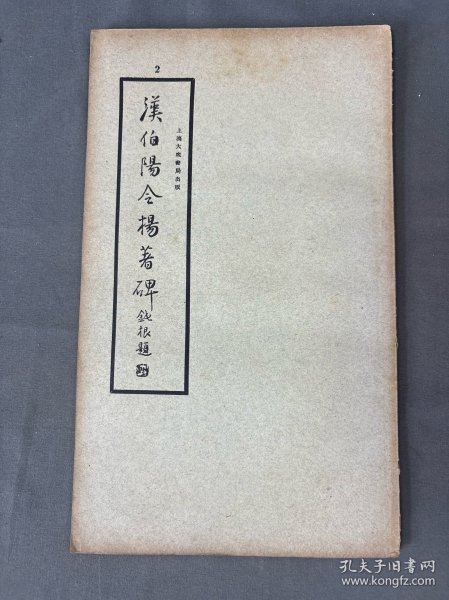 2
漢伯陽令楊著碑
鈍根題
上海大眾書局出版
孔夫子旧书网
www.kongfz.com